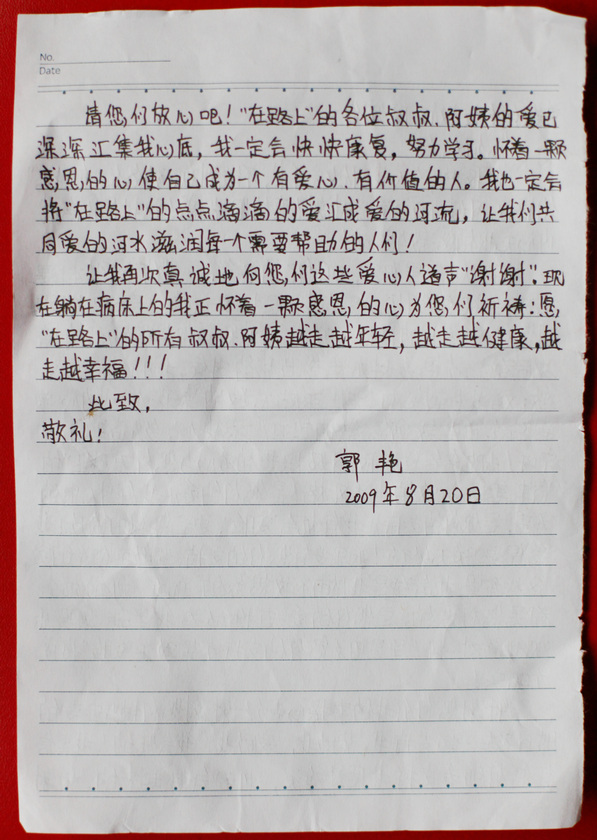 No.
Date
请您们放心吧！“在路上”的各位叔叔、阿姨的爱已
深深汇集我心底，我一定会快快康复，努力学习。怀着一颗
感恩的心，使自己成为一个有爱心、有价值的人。我也一定会
将“在路上”的点点滴滴的爱汇成爱的河流，让我们共
同爱的河水滋润每一个需要帮助的人们！
让我再次真诚地向您们这些爱心人道声“谢谢”。现
在躺在病床上的我正怀着一颗感恩的心为您们祈祷：愿
“在路上”的所有叔叔、阿姨越走越年轻，越走越健康，越
走越幸福！！！
此致，
敬礼！
郭艳
2009年8月20日